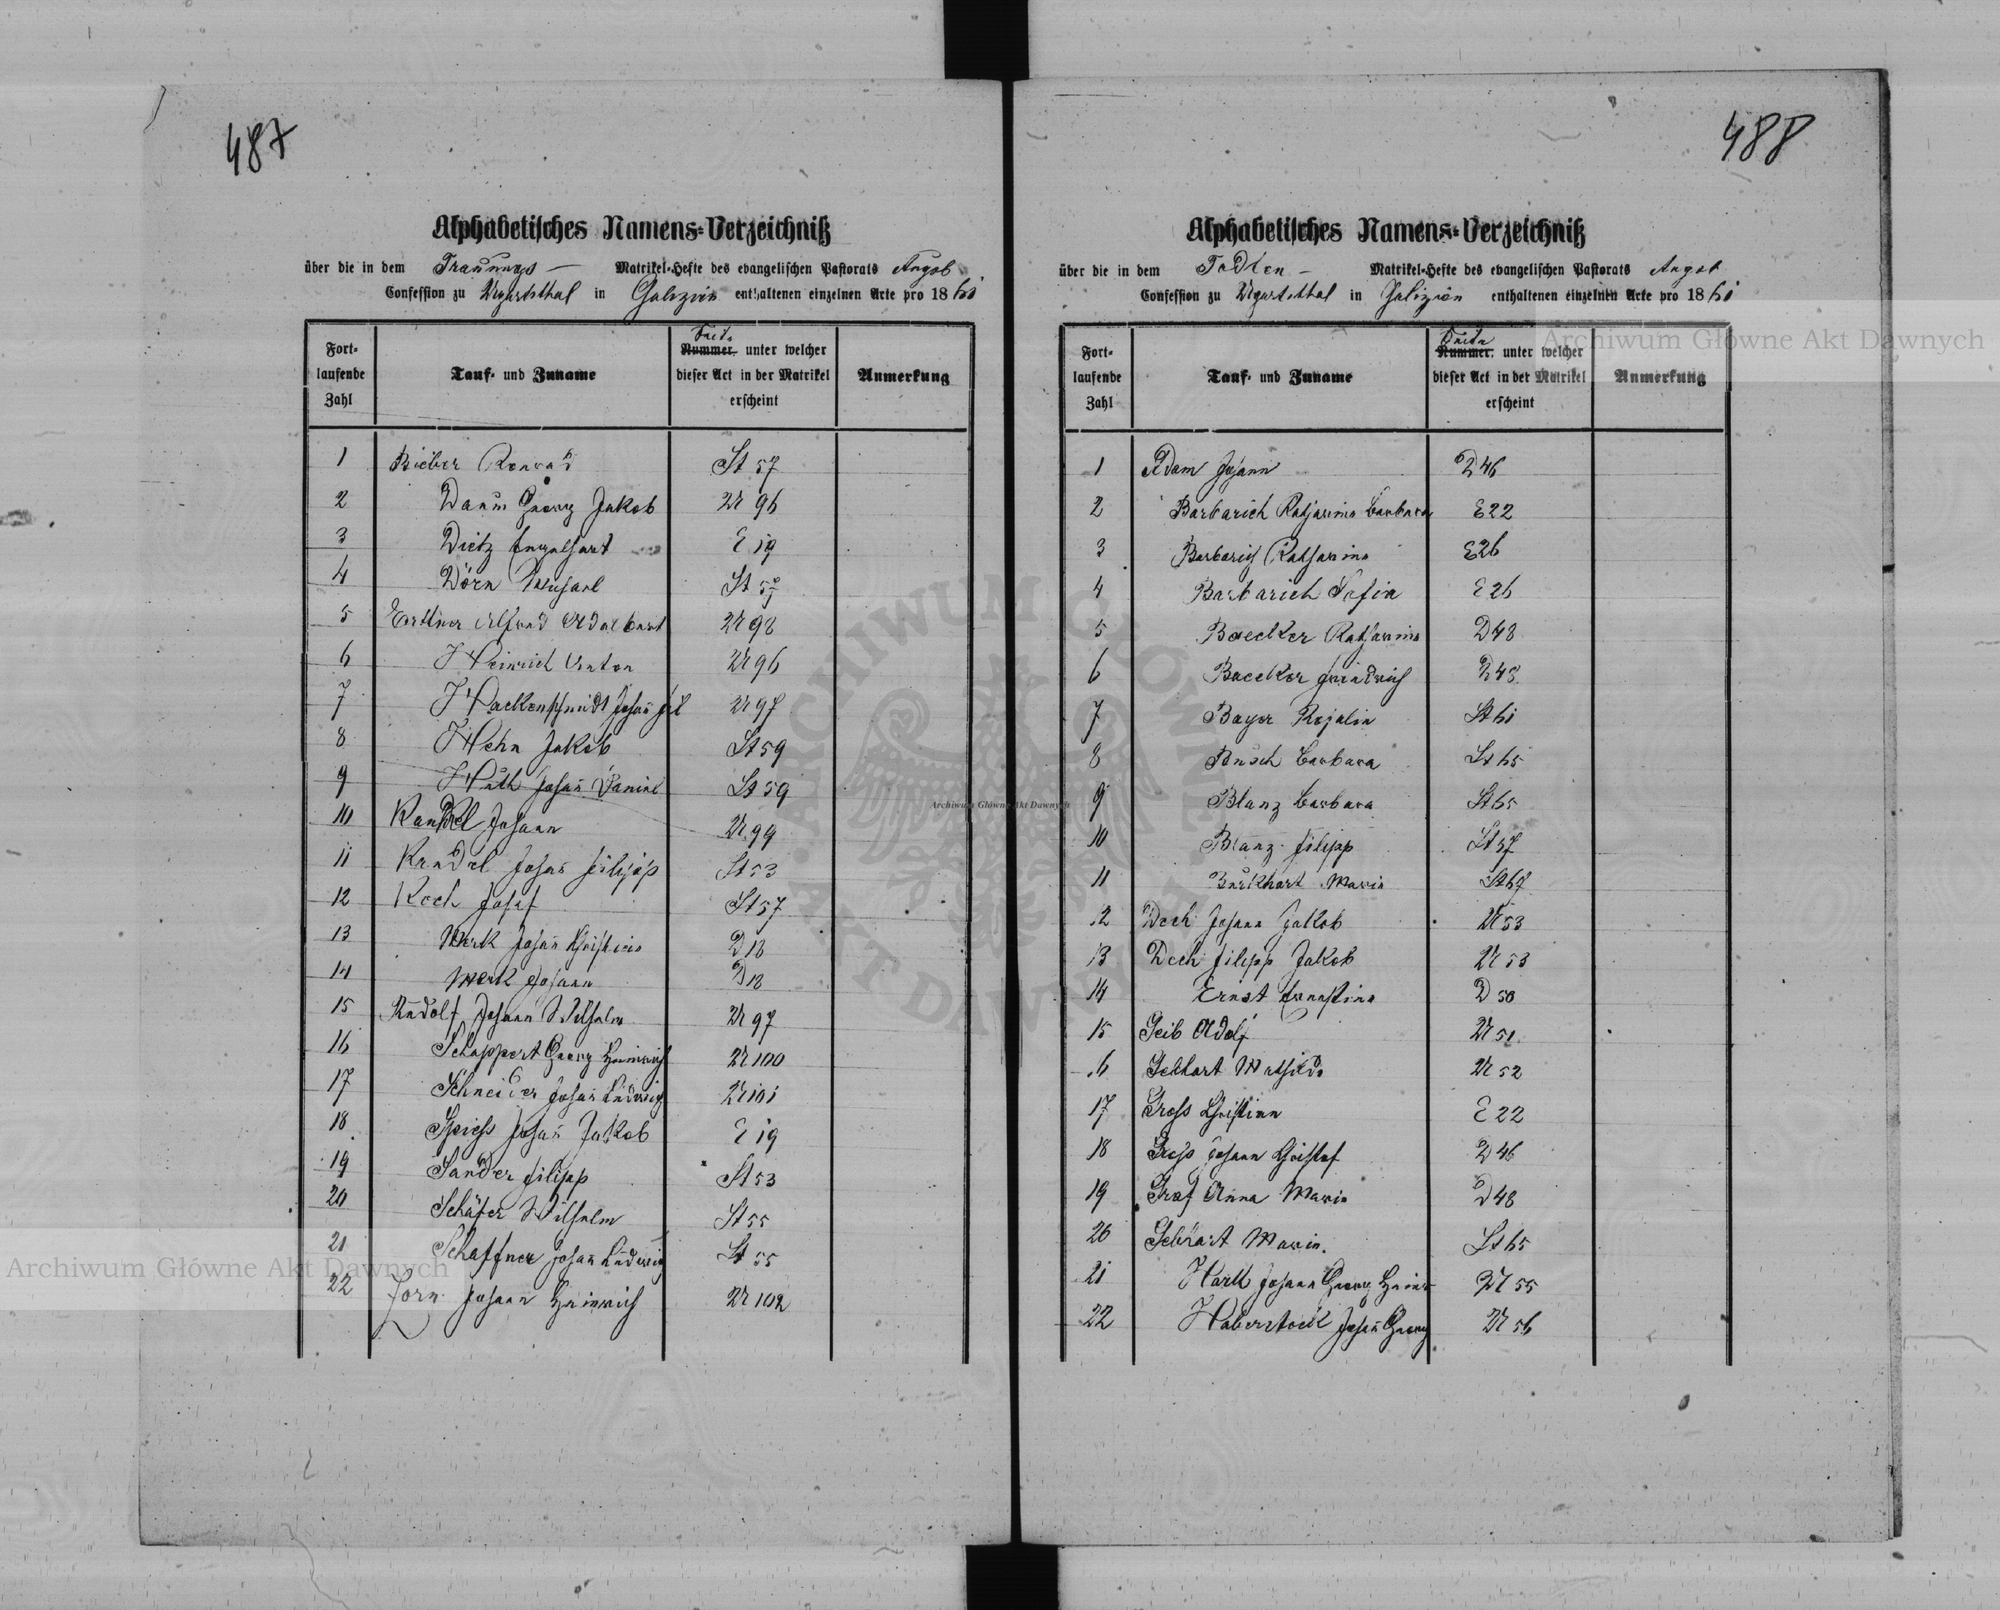 487
Alphabetisches Namens-Verzeichniß
über die in dem Trauungs- Matrikel-Hefte des evangelischen Pastorats Augsb
Confession zu Ugartsthal in Galizien enthaltenen einzelnen Acte pro 1861
Fort-
laufende
Zahl
Tauf- und Zuname
Seite
Nummer unter welcher
dieser Act in der Matrikel
erscheint
Anmerkung
1 Bieber Konrad St 57
2 Daum Georg Jakob U 96
3 Dietz Engelhart E 19
4 Dörn St
5 Alfred Adalbert U 98
6 Heinrich Anton U 96
7 Hackenschmidt Johan U 97
8 Hehn Jakob St 59
9 Huth Johan Daniel St 59
10 Johann U 99
11 Kendel Johan Filipp St 53
12 Koch Josef St 57
13 Merk Johan D 18
14 Merk Johann D 18
15 Rudolf Johann Wilhelm U 97
16 Schappert Georg Heinrich U 100
17 Schneider Johan Ludwig U 101
18 Spiess Johan Jakob E 19
19 Sander Filipp St 53
20 Schäfer Wilhelm St 55
21 Schaffner Johan Ludwig St 55
22 Zorn Johann Heinrich U 102
488
Alphabetisches Namens-Verzeichniß
über die in dem Todten- Matrikel-Hefte des evangelischen Pastorats Augsb
Confession zu Ugartsthal in Galizien enthaltenen einzelnen Acte pro 1861
Fort-
laufende
Zahl
Tauf- und Zuname
Seite
Nummer unter welcher
dieser Act in der Matrikel
erscheint
Anmerkung
1 Adam Johann D 46
2 Barbarich Katharina Barbara E 22
3 Barbarich Katharina E 26
4 Barbarich Sofia E 26
5 Baecker Katharina D 48
6 Baecker Friedrich D 48
7 Bayer Rosalia St 61
8 Busch Barbara St 65
9 Blanz Barbara St 65
10 Blanz Filipp St 57
11 Burkhart Maria St 67
12 Dech Johann Jakob U 53
13 Dech Filipp Jakob U 53
14 Ernst Ernestina D 50
15 Geib Adolf U 51
16 Gebhart Mathilde U 52
17 Gross Christian E 22
18 Gross Johann Christof D 46
19 Graf Anna Maria D 48
20 Gebhart Maria St 65
21 Hark Johann Georg Heinr U 55
22 Haberstock Johan Georg U 56
Archiwum Główne Akt Dawnych
Archiwum Główne Akt Dawnych
Archiwum Główne Akt Dawnych
ARCHIWUM GŁÓWNE AKT DAWNYCH